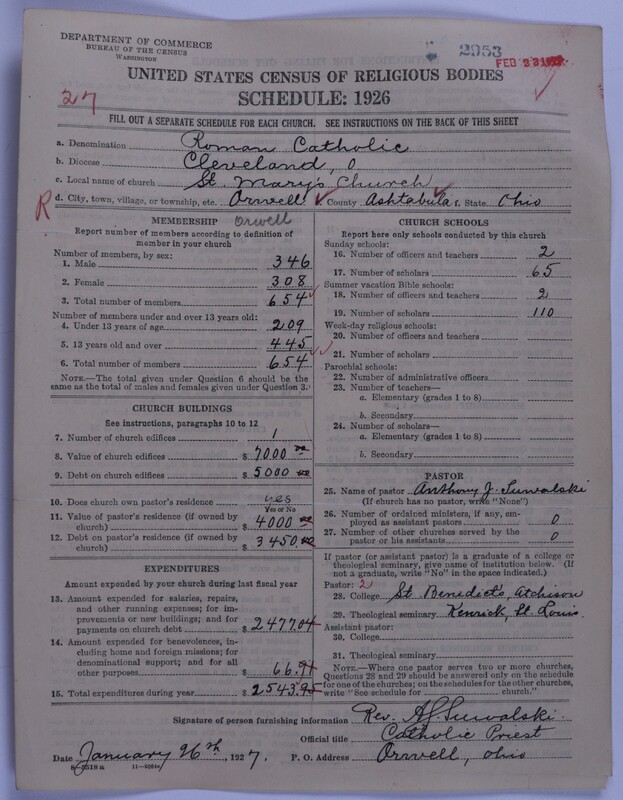 DEPARTMENT OF COMMERCE
BUREAU OF THE CENSUS
WASHINGTON
2953
FEB 23 1927
UNITED STATES CENSUS OF RELIGIOUS BODIES
27
SCHEDULE: 1926
FILL OUT A SEPARATE SCHEDULE FOR EACH CHURCH. SEE INSTRUCTIONS ON THE BACK OF THIS SHEET
a. Denomination Roman Catholic
b. Diocese Cleveland, O
c. Local name of church St. Mary's Church
R d. City, town, village, or township, etc. Orwell e. County Ashtabula f. State Ohio
Orwell
MEMBERSHIP
Report number of members according to definition of
member in your church
Number of members, by sex:
1. Male 346
2. Female 308
3. Total number of members 654
Number of members under and over 13 years old:
4. Under 13 years of age 209
5. 13 years old and over 445
6. Total number of members 654
NOTE.—The total given under Question 6 should be the
same as the total of males and females given under Question 3.
CHURCH BUILDINGS
See instructions, paragraphs 10 to 12
7. Number of church edifices 1
8. Value of church edifices $ 7000 00
9. Debt on church edifices $ 5000 00
10. Does church own pastor's residence yes
Yes or No
11. Value of pastor's residence (if owned by
church) $ 4000 00
12. Debt on pastor's residence (if owned by
church) $ 3450.00
EXPENDITURES
Amount expended by your church during last fiscal year
13. Amount expended for salaries, repairs,
and other running expenses; for im-
provements or new buildings; and for
payments on church debt $ 2477.04
14. Amount expended for benevolences, in-
cluding home and foreign missions; for
denominational support; and for all
other purposes $ 66.91
15. Total expenditures during year $ 2543.95
CHURCH SCHOOLS
Report here only schools conducted by this church
Sunday schools:
16. Number of officers and teachers 2
17. Number of scholars 65
Summer vacation Bible schools:
18. Number of officers and teachers 2
19. Number of scholars 110
Week-day religious schools:
20. Number of officers and teachers
21. Number of scholars
Parochial schools:
22. Number of administrative officers
23. Number of teachers—
a. Elementary (grades 1 to 8)
b. Secondary
24. Number of scholars—
a. Elementary (grades 1 to 8)
b. Secondary
PASTOR
25. Name of pastor Anthony J. Suwalski
(If church has no pastor, write "None")
26. Number of ordained ministers, if any, em-
ployed as assistant pastors 0
27. Number of other churches served by the
pastor or his assistants 0
If pastor (or assistant pastor) is a graduate of a college or
theological seminary, give name of institution below. (If
not a graduate, write "No" in the space indicated.)
Pastor: 2
28. College St. Benedict's, Atchison
29. Theological seminary Kenrick, St. Louis.
Assistant pastor:
30. College
31. Theological seminary
NOTE.—Where one pastor serves two or more churches,
Questions 28 and 29 should be answered only on the schedule
for one of the churches; on the schedules for the other churches,
write "See schedule for church."
Signature of person furnishing information Rev. A. J. Suwalski.
Official title Catholic Priest
Date January 26th, 1927. P. O. Address Orwell, Ohio